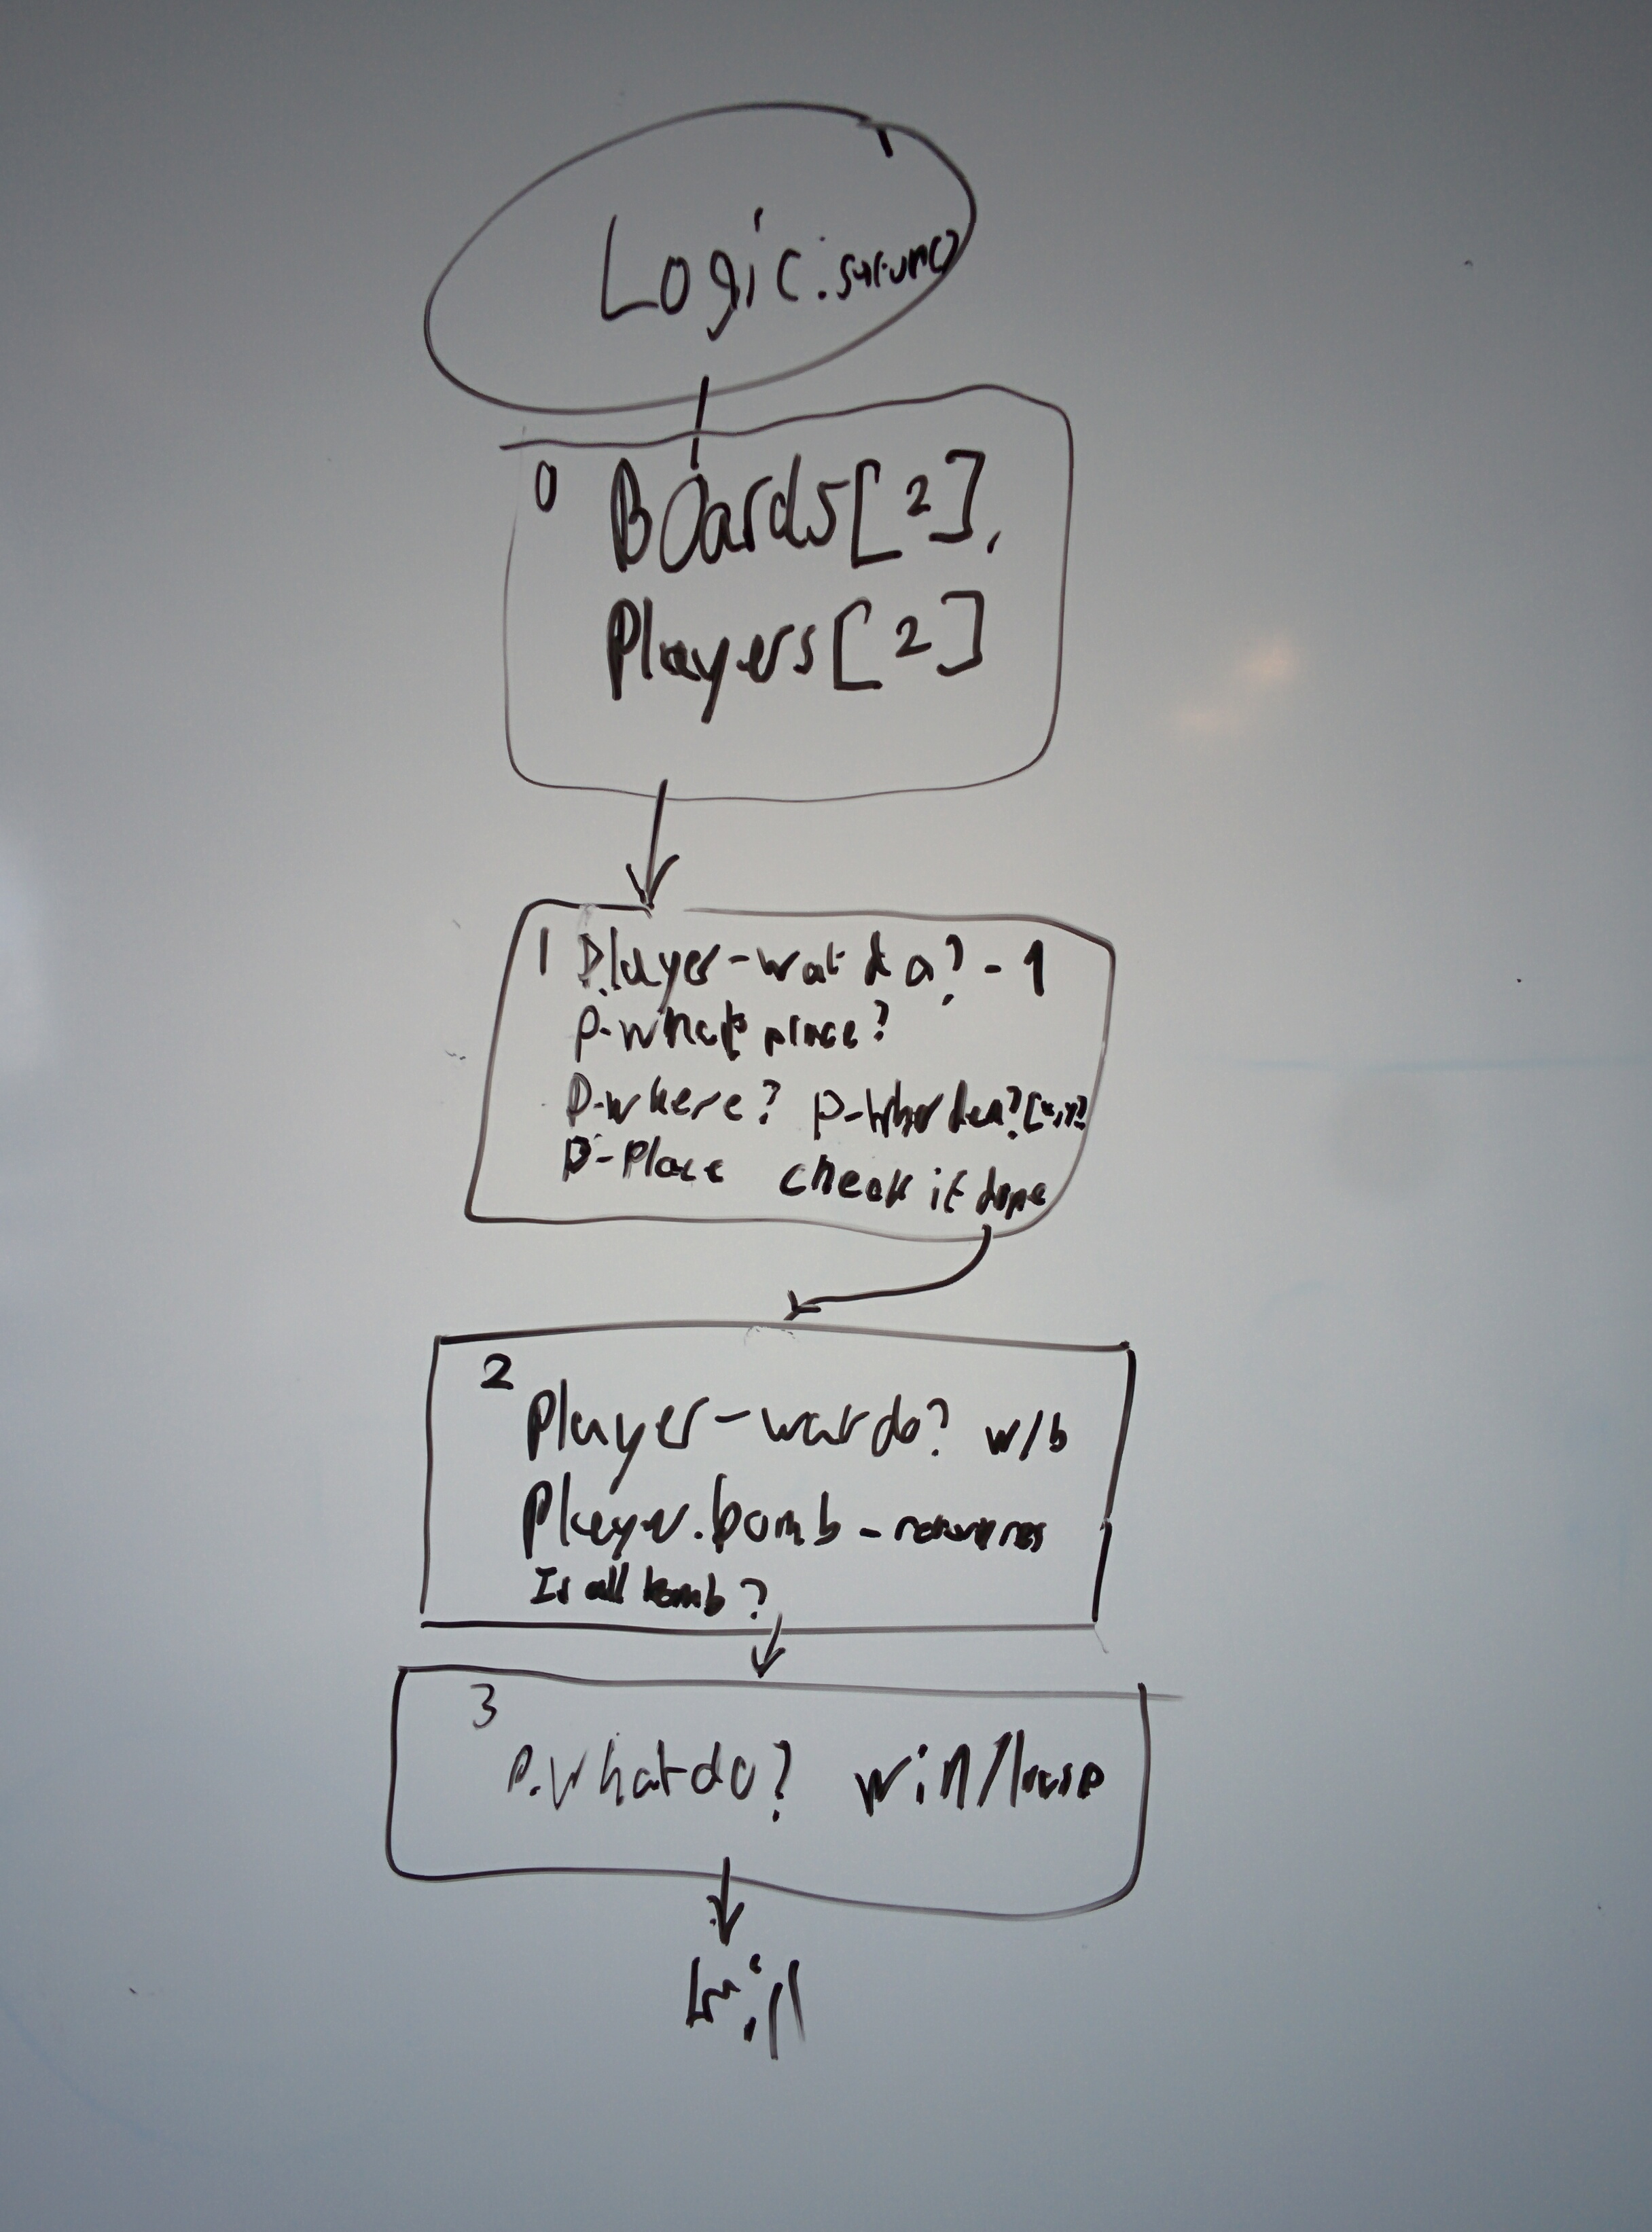 Logic.
0 Boards[2],
Players[2]
1 Player-wat do? - 1
P-what place?
P-where?
P-Place check if done
2
Player-wat do? w/b
Player.bomb - return res
Is all bomb?
3
P.whatdo? win/loose